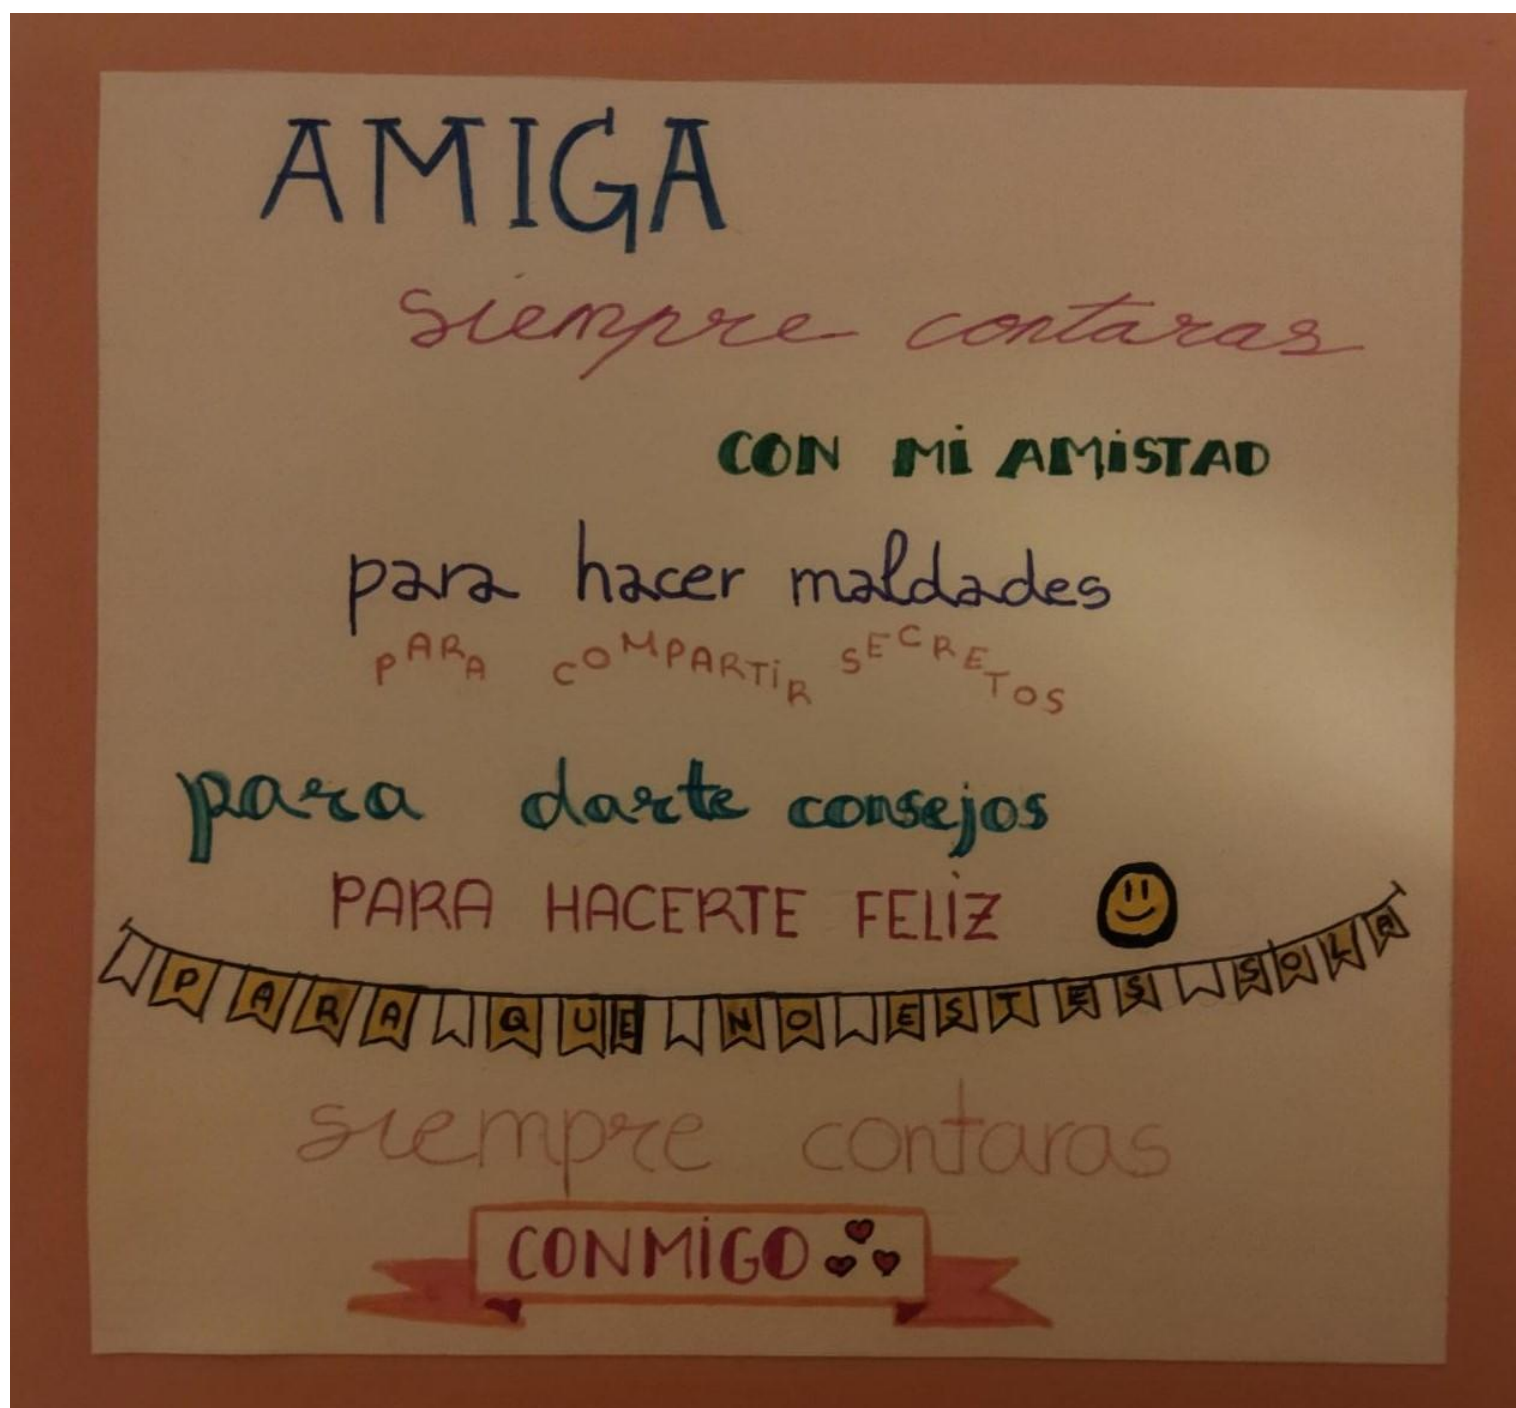 AMIGA
siempre contaras
CON Mi AMiSTAD
para hacer maldades
PARA COMPARTiR SECRETOS
para darte consejos
PARA HACERTE FELiZ
PARA QUE NO ESTES SOLA
siempre contaras
CONMiGO